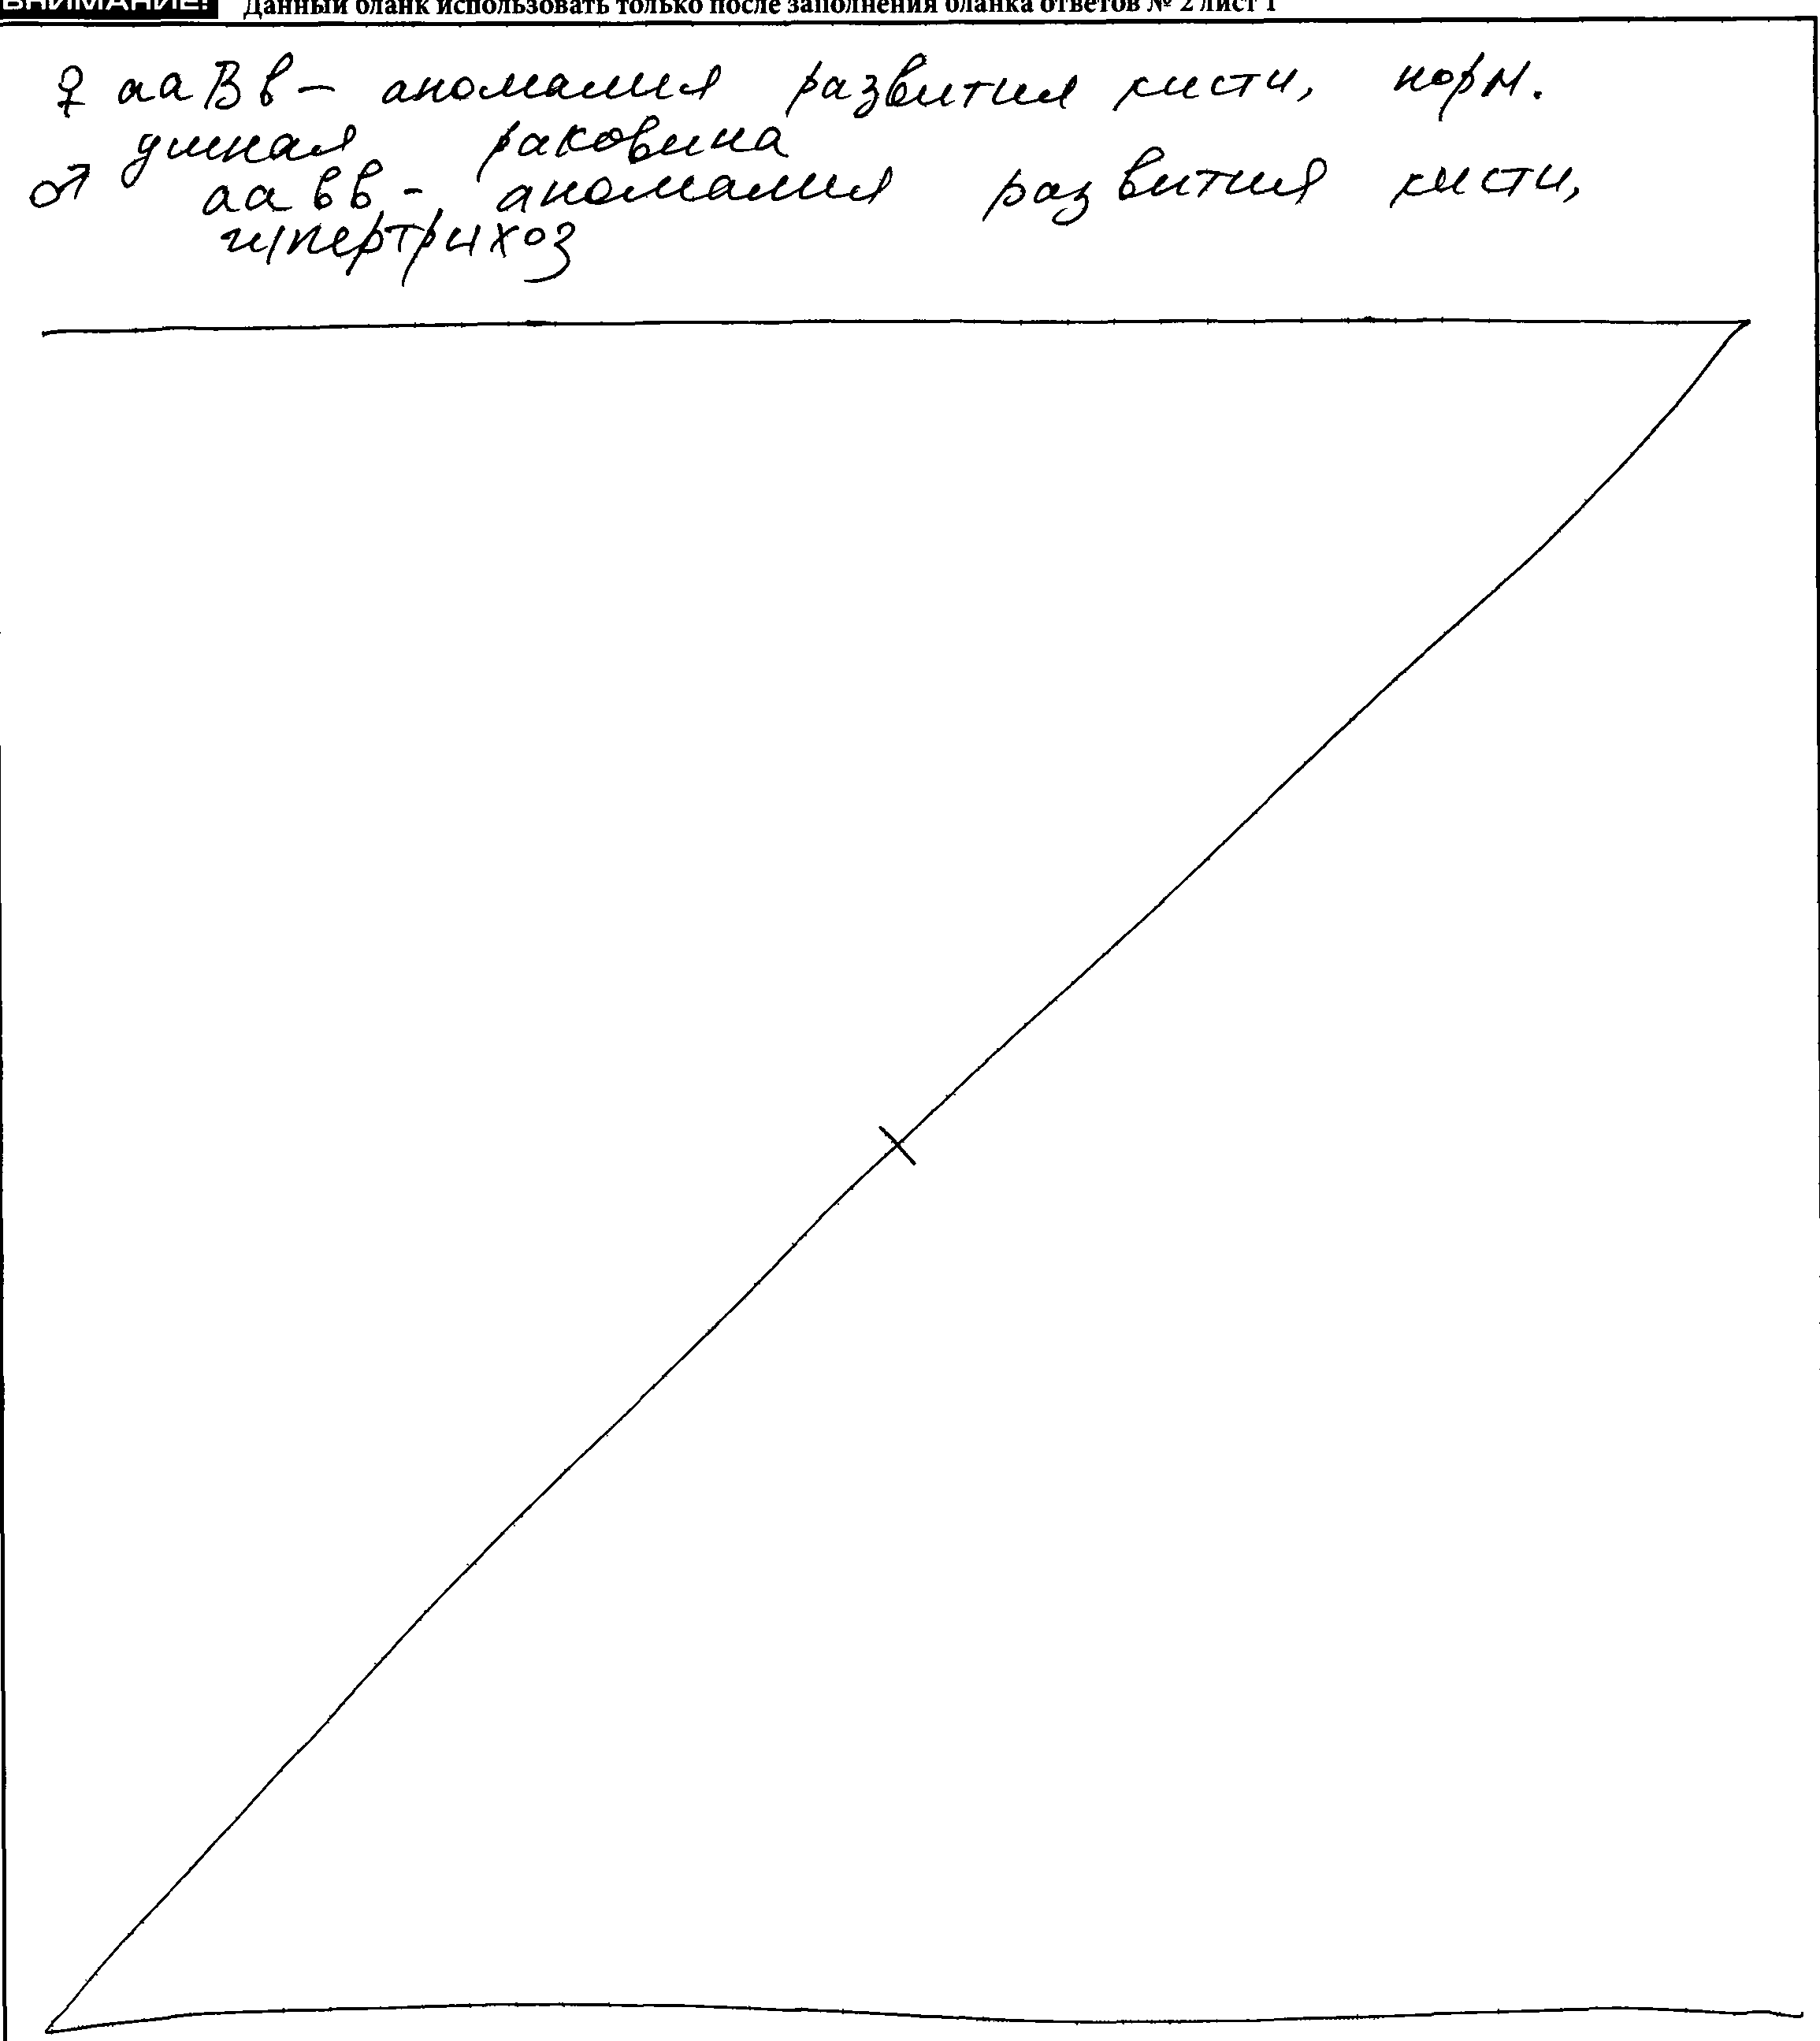 ВНИМАНИЕ! Данный бланк использовать только после заполнения бланка ответов № 2 лист 1
♀ aaBb – аномалия развития кисти, норм.
ушная раковина
♂ aabb - аномалия развития кисти,
гипертрихоз